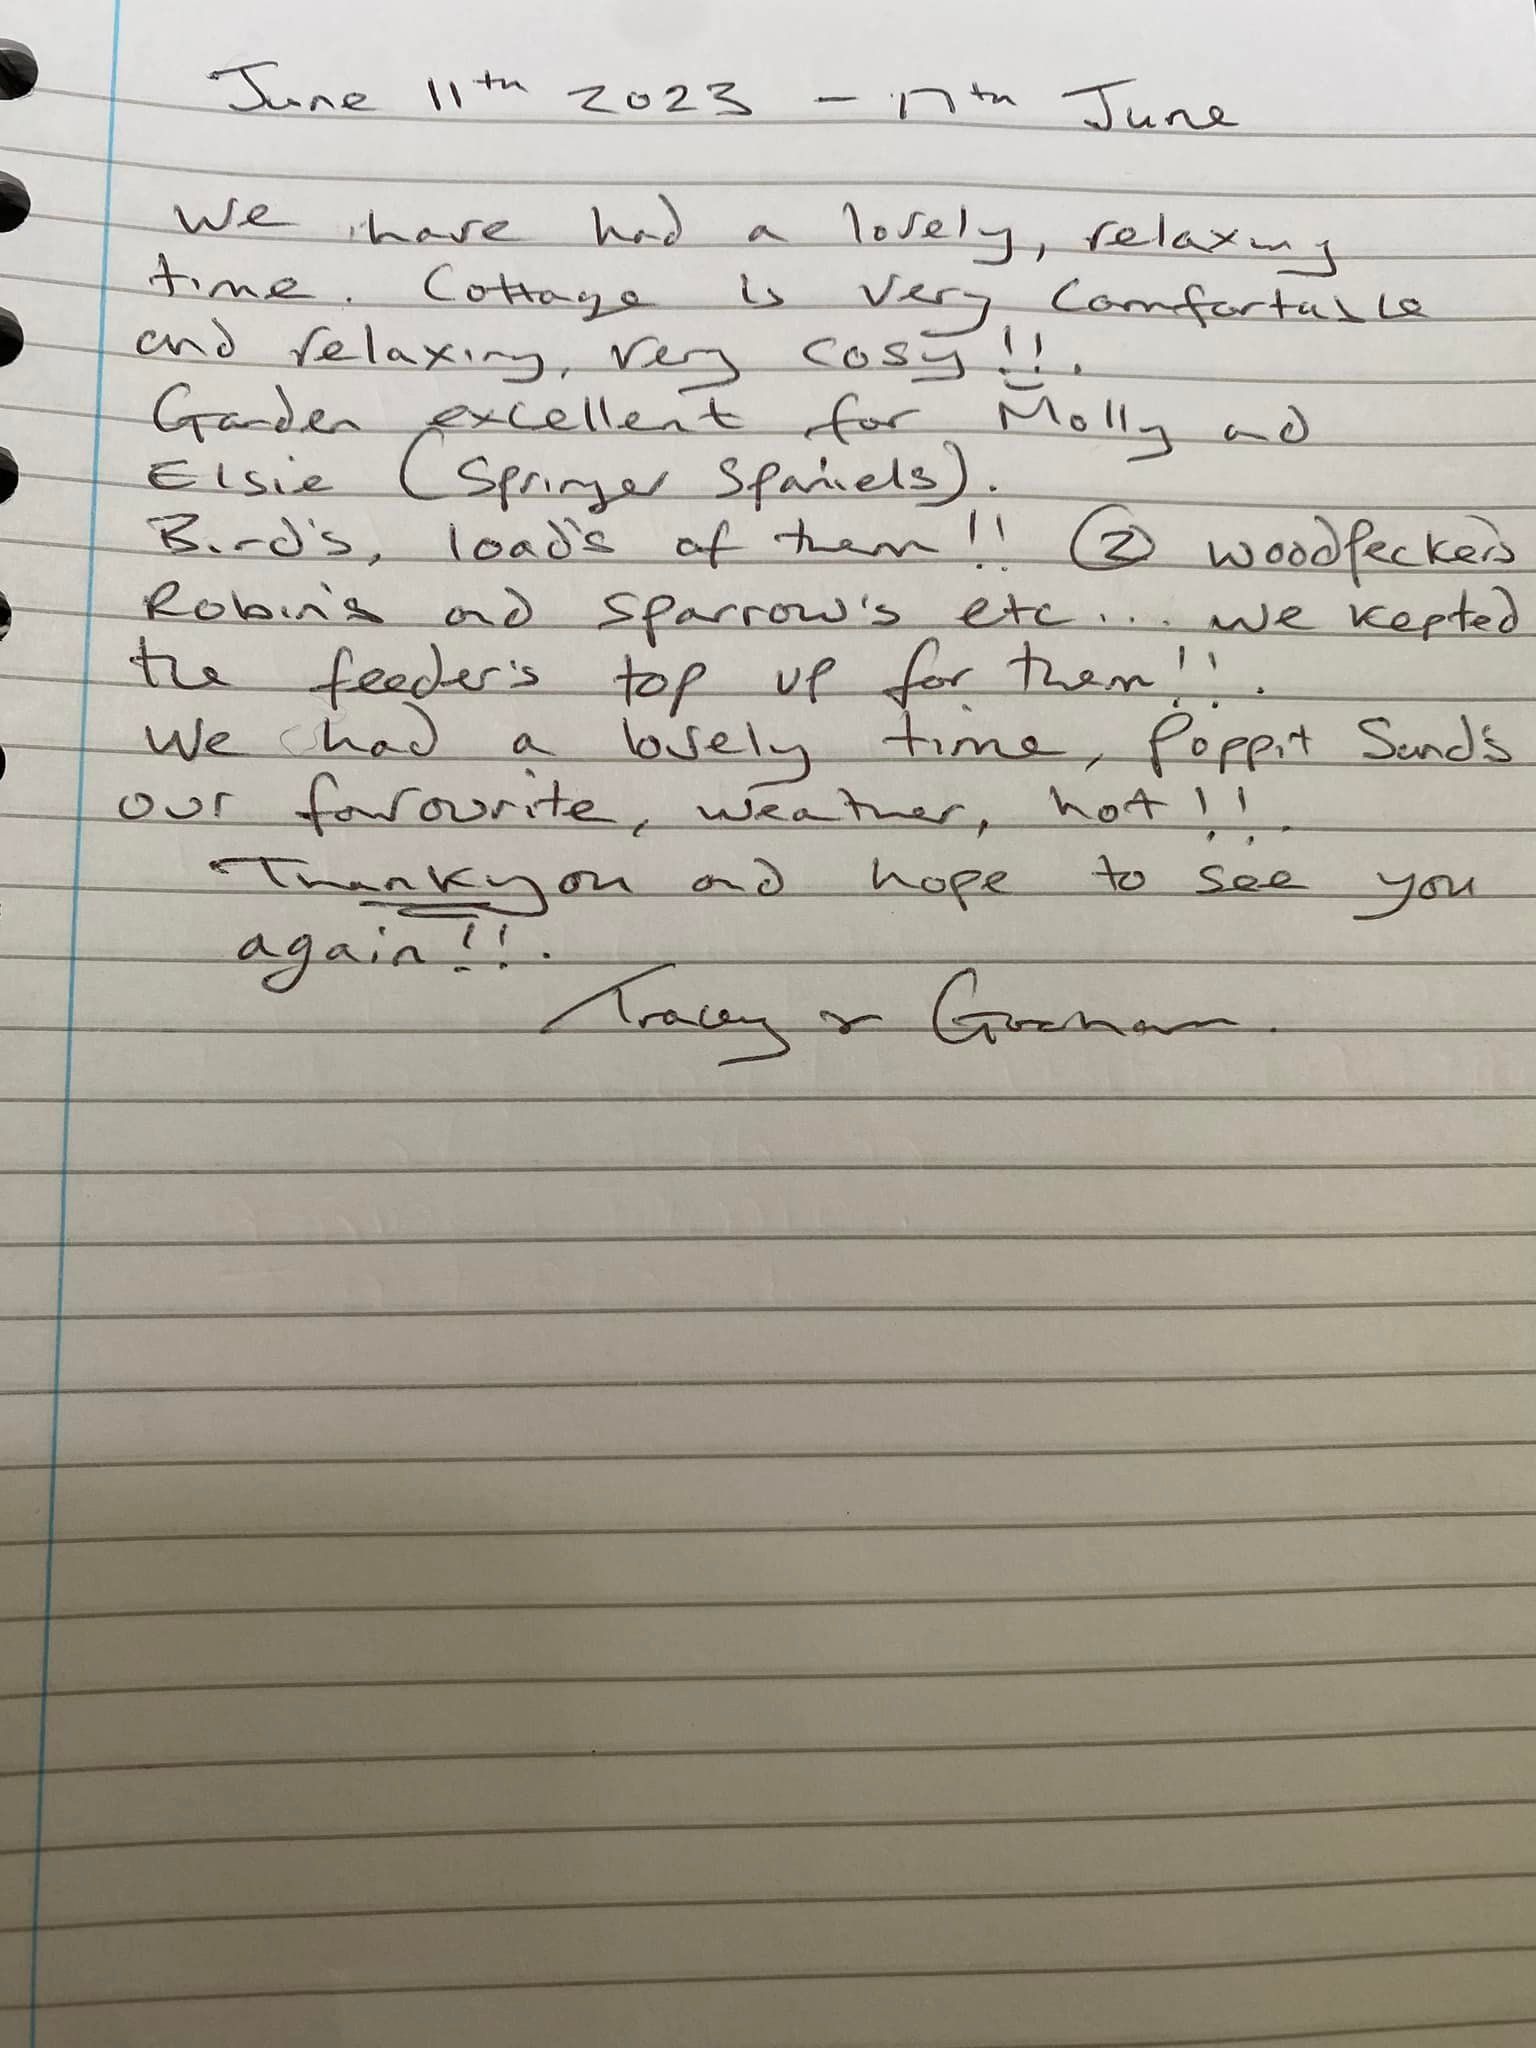 June 11th 2023 - 17th June
We have had a lovely, relaxing
time. Cottage is very comfortable
and relaxing, very cosy!!.
Garden excellent for Molly and
Elsie (Springer Spaniels).
Bird's, load's of them!! ② woodpecker's
Robin's and Sparrow's etc... we kepted
the feeder's top up for them!!.
We had a lovely time, Poppit Sand's
our favourite, weather, hot!!.
Thankyou and hope to see you
again!!.
Tracey & Graham.